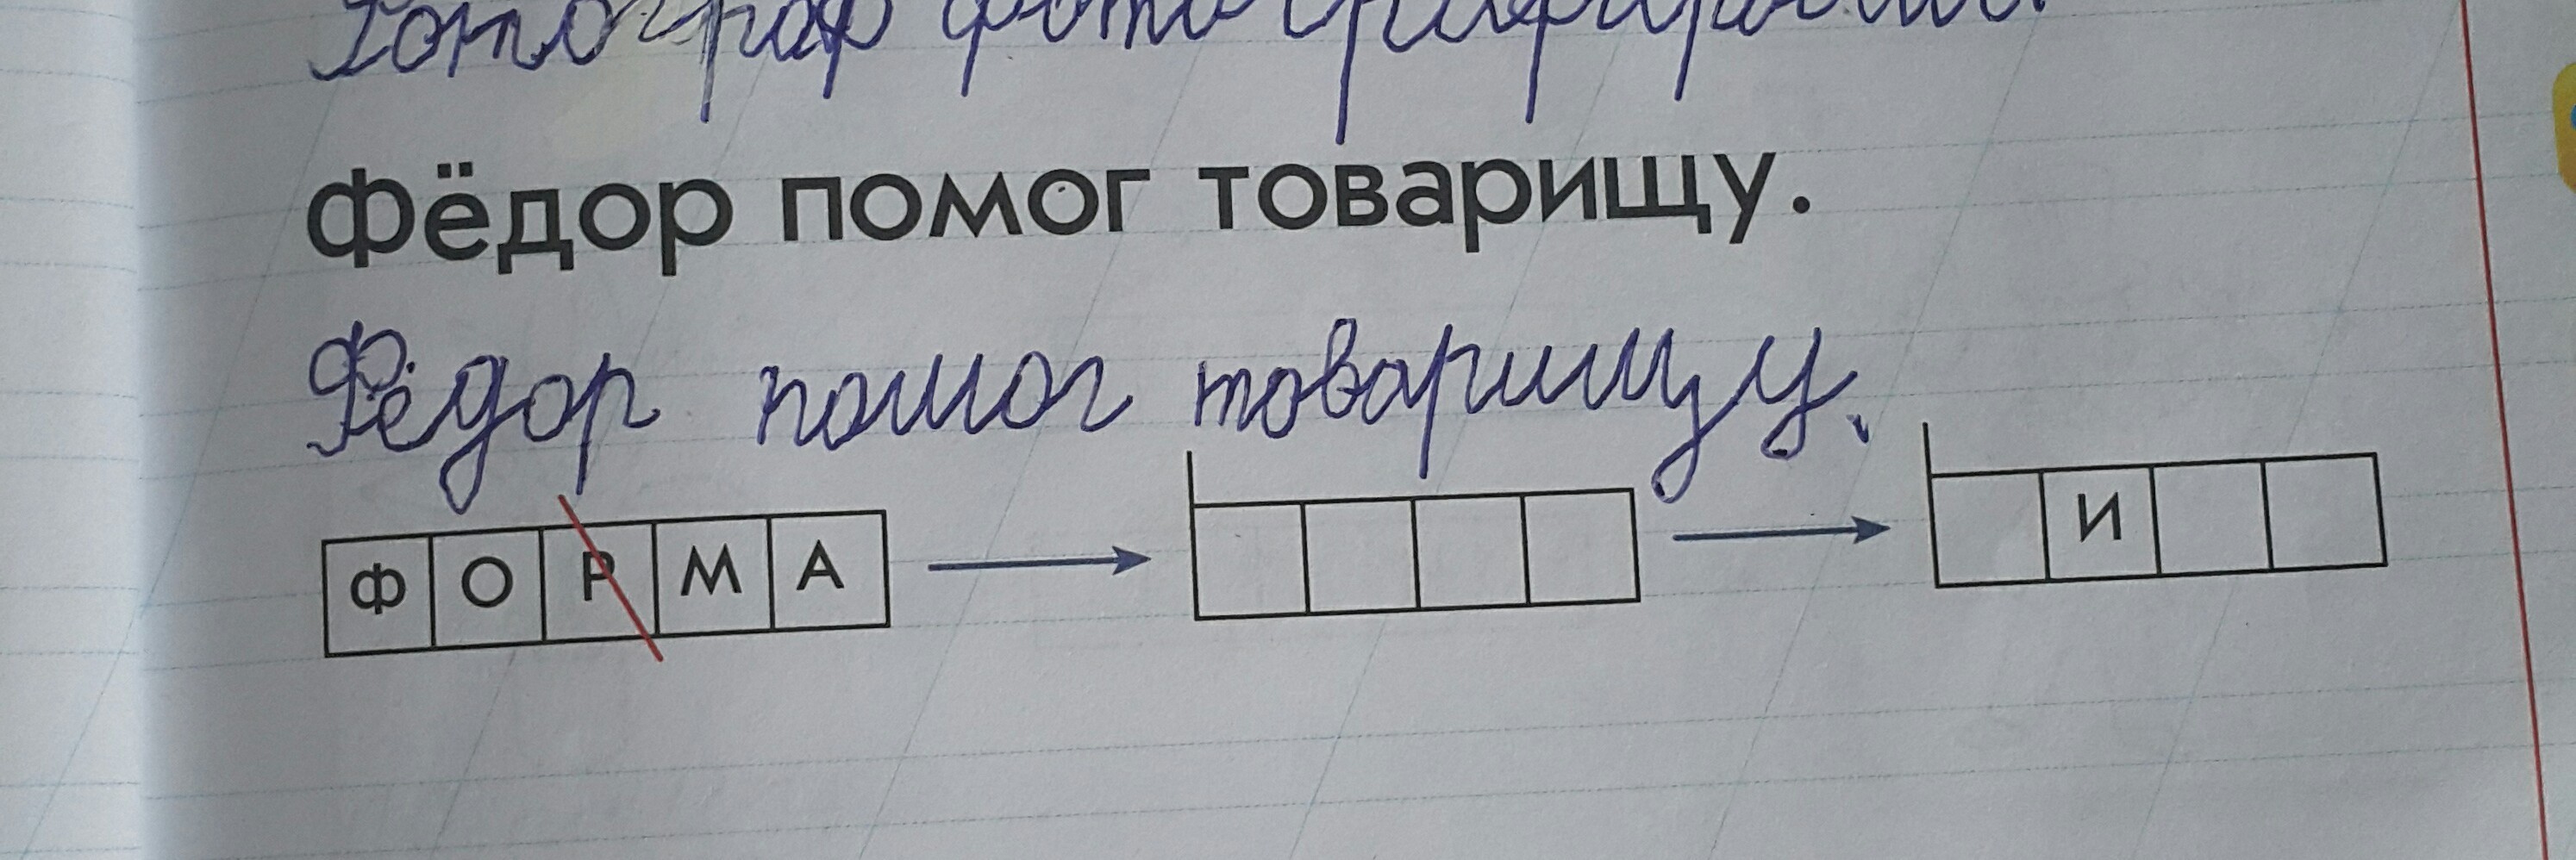 Фотограф фотографировал.
фёдор помог товарищу.
Фёдор помог товарищу.
Ф О Р М А И